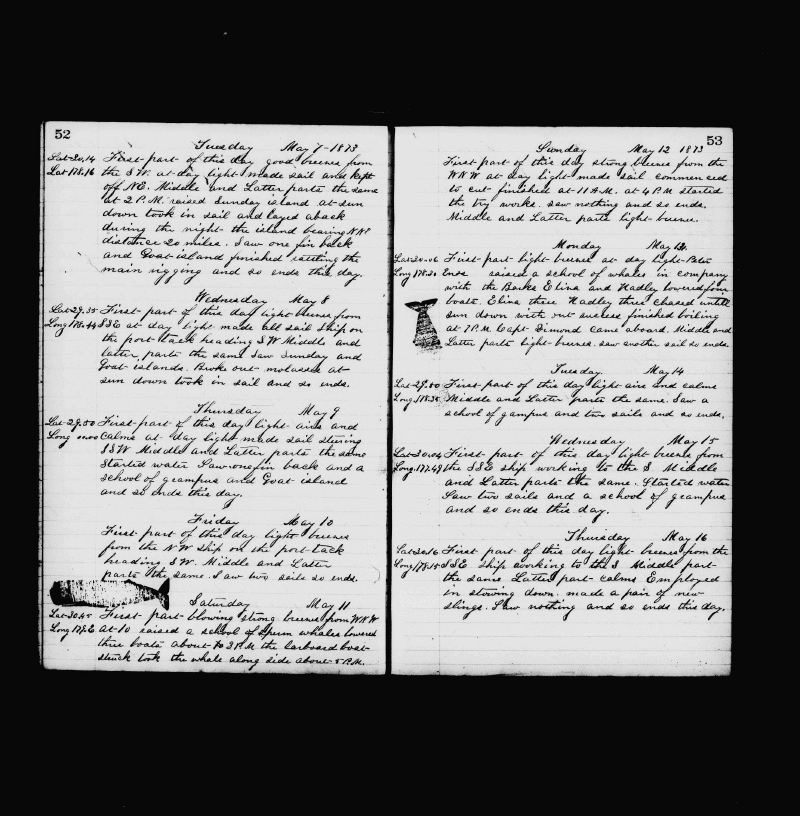 52
Tuesday May 7 - 1873
Lat 29.14 First part of this day good breeses from
Lat 178.16 the S W. at day light made sail and kept
off N E. Middle and Latter parts the same
at 2 P.M. raised Sunday island at sun
down took in sail and layed aback
during the night the island bearing
distance 20 miles. Saw one fin back
and Goat island finished rattling the
main rigging and so ends this day.
Wednesday May 8
Lat 29.35 First part of this day light breeses from
Long 178.44 SSE at day light made all sail Ship on
the port tack heading S W Middle and
latter parts the same Saw Sunday and
Goat islands. Broke out molasses at
sun down took in sail and so ends.
Thursday May 9
Lat 29.50 First part of this day light airs and
Long calms at day light made sail steering
S S W Middle and Latter parts the same
Started water Saw one fin back and a
school of grampus and Goat island
and so ends this day.
Friday May 10
First part of this day light breeses
from the N W ship on the port tack
heading S W. Middle and Latter
parts the same. Saw two sails so ends.
Saturday May 11
Lat 30.45 First part blowing strong breeses from W N W
Long 178 E at 10 raised a school of Sperm whales lowered
three boats about 2 P M the larboard boat
struck took the whale along side about 5 P.M.
53
Sunday May 12 1873
First part of this day strong breeses from the
W N W at day light made sail commenced
to cut finished at 11 A.M. at 4 P.M started
the try works. saw nothing and so ends.
Middle and Latter parts light breeses.
Monday May
First part light breeses at day light
Long raised a school of whales in company
with the Barks Eliza and Hadley lowered four
boats. Eliza three Hadley three chased untill
sun down with out sucsess finished boiling
at 7 P.M. Capt Dimond came aboard. Middle and
Latter parts light breeses. saw another sail so ends.
Tuesday. May 14
Lat 29.50 First part of this day light airs and calms
Long 178.35 Middle and Latter parts the same. Saw a
school of gampus and two sails and so ends.
Wednesday May 15
Lat 30.04 First part of this day light breeses from
Long. 177.49 the S S E ship working to the S Middle
and Latter parts the same. Started water
Saw two sails and a school of grampus
and so ends this day.
Thursday May 16
Lat 30.16 First part of this day light breeses from the
Long 178.15 S S E Ship working to the S Middle part
the same. Latter part calms Employed
in stowing down. made a pair of new
slings. Saw nothing and so ends this day.